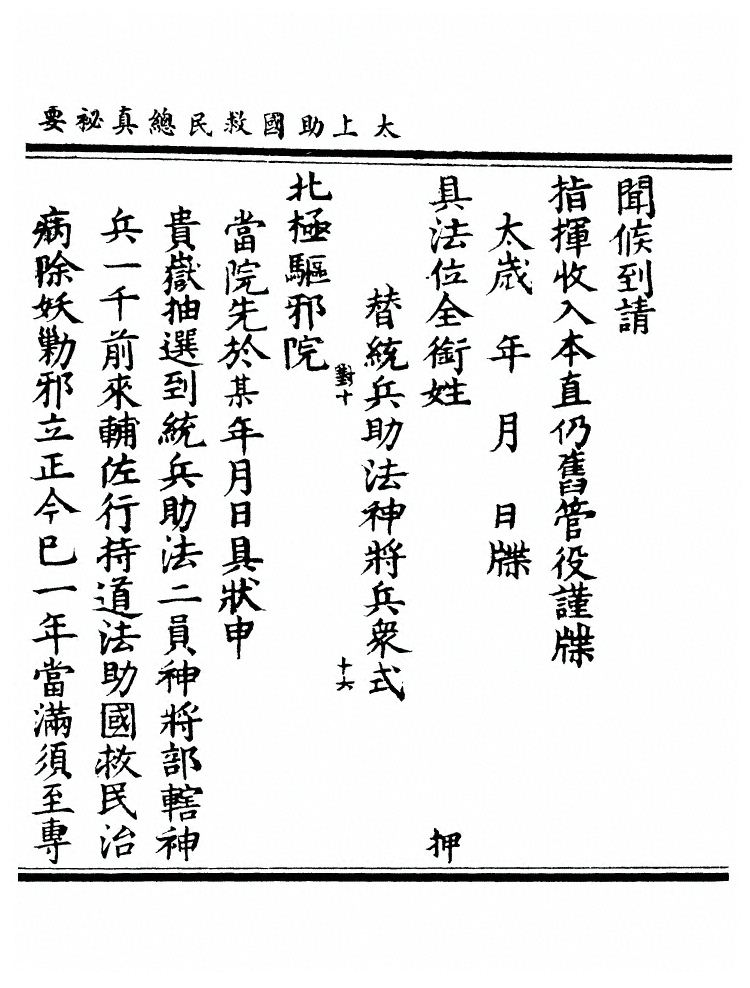 太上助國救民總真祕要
聞候到請
指揮收入本直仍舊管役謹牒
太歲　年　月　日牒
具法位全銜姓　押
替統兵助法神將兵衆式
對十　十六
北極驅邪院
當院先於某年月日具狀申
貴嶽抽選到統兵助法二員神將部轄神
兵一千前來輔佐行持道法助國救民治
病除妖勦邪立正今巳一年當滿須至專